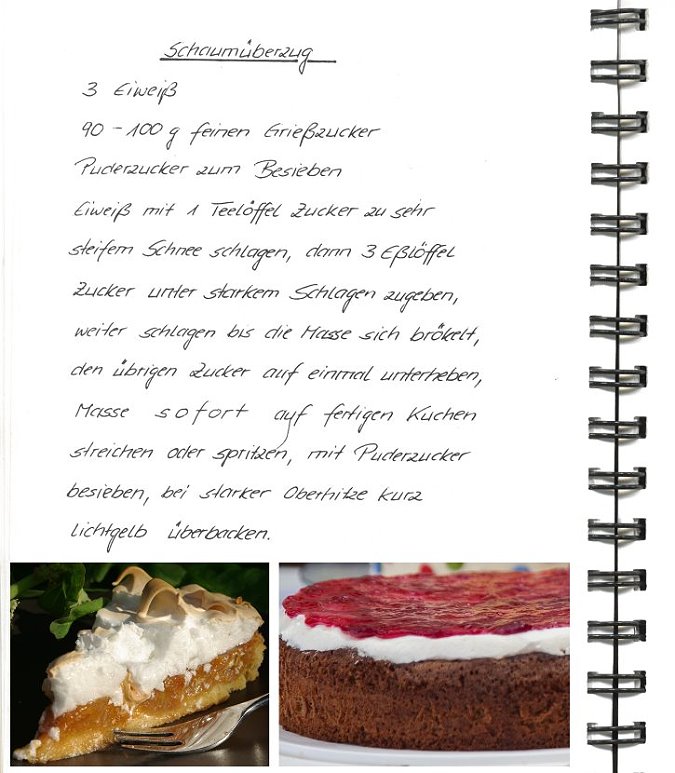 Schaumüberzug
3 Eiweiß
90 - 100 g feinen Grießzucker
Puderzucker zum Besieben
Eiweiß mit 1 Teelöffel Zucker zu sehr
steifem Schnee schlagen, dann 3 Eßlöffel
Zucker unter starkem Schlagen zugeben,
weiter schlagen bis die Masse sich brökelt,
den übrigen Zucker auf einmal unterheben,
Masse sofort auf fertigen Kuchen
streichen oder spritzen, mit Puderzucker
besieben, bei starker Oberhitze kurz
lichtgelb überbacken.